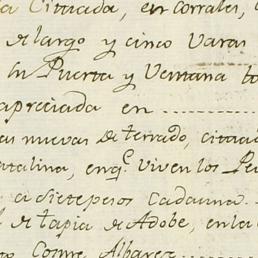 Cituada, en corrales,
de largo y cinco Varas
su Puerta y Ventana
apreciada en
nuevas de terrado, citua
atalina, en q.e viven los Pe
a siete pesos cada una
de tapia de Adobe, en la
Cosme Albarez